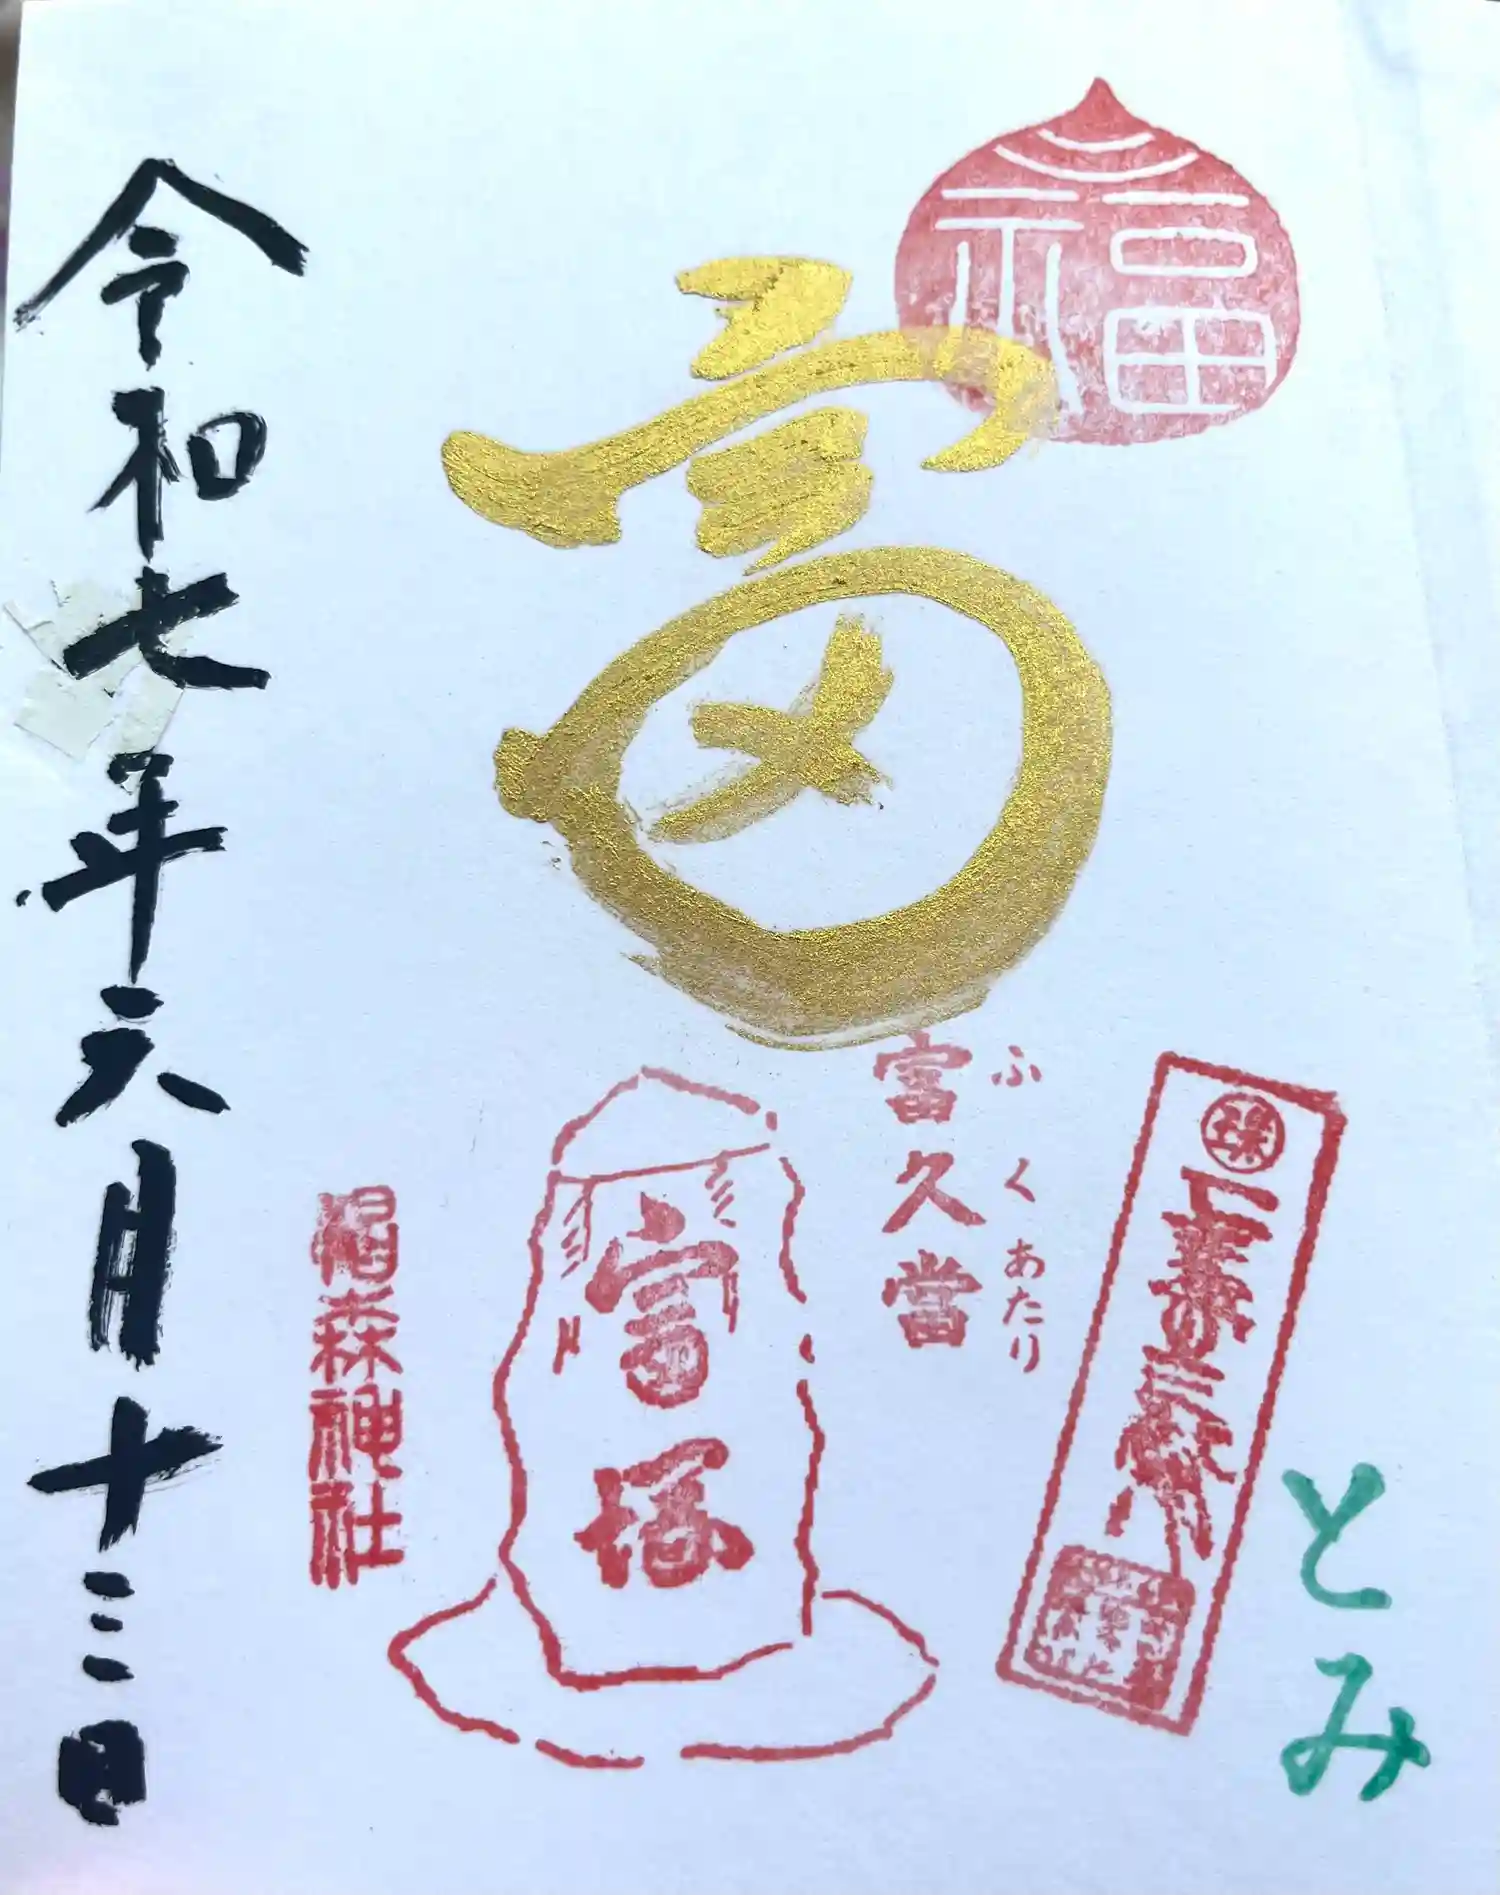 福
富
とみ
ふくあたり
富久當
富塚
椙森神社
令和七年六月十三日